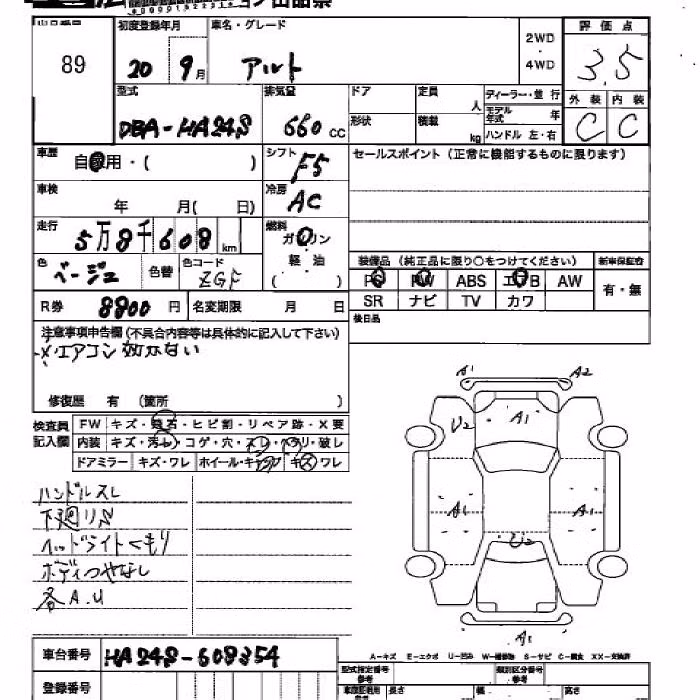 出品票
出品番号 初度登録年月 車名・グレード 2WD・4WD 評価点
89 20 9月 アルト 3.5
型式 排気量 ドア 定員 人 ディーラー・並行 外装 内装
DBA-HA24S 660 CC 形状 積載 kg モデル年式 年 ハンドル 左・右 C C
車歴 自家用・( ) シフト F5 セールスポイント(正常に機能するものに限ります)
車検 年 月( 日) 冷房 AC
走行 5万8千608km 燃料 ガソリン
軽油
( )
色 ベージュ 色替 色コード ZGF
装備品(純正品に限り○をつけてください) 新車保証書
PS PW ABS エアB AW 有・無
SR ナビ TV カワ
R券 8800円 名変期限 月 日 後日品
注意事項申告欄(不具合内容等は具体的に記入して下さい)
※エアコン効かない
修復歴 有 (箇所 )
検査員記入欄 FW キズ・飛石・ヒビ割・リペア跡・X要
内装 キズ・汚れ・コゲ・穴・スレ・ヘタリ・破レ
ドアミラー キズ・ワレ ホイール・キャップ キズ ワレ
A1 A2
U2 A1
A1 A1
U2
A1
ハンドルスレ
下廻りS
ヘッドライトくもり
ボディつやなし
各A.U
A-キズ E-エクボ U-凹み W-補修跡 S-サビ C-腐食 XX-交換済
車台番号 HA24S-608354 型式指定番号 参考 類別区分番号 参考
登録番号 長さ 幅 高さ